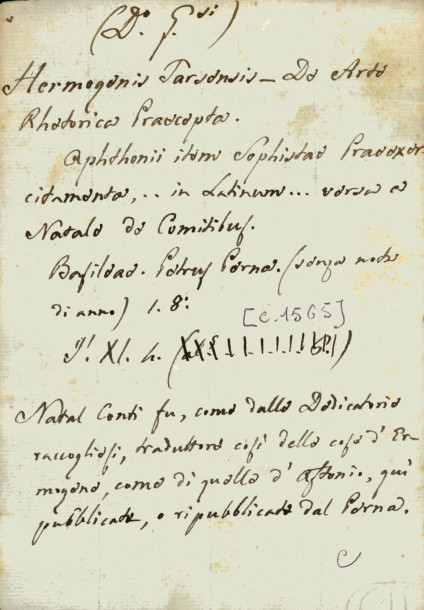 (D.º G.si)
Hermogenis Tarsensis – De Arte
Rhetorica Praecepta.
Aphthonii item Sophistae Praeexer-
citamenta, .. in Latinum ... versa a
Natale de Comitibus.
Basileae. Petrus Perna. (senza nota
di anno) 1. 8:
[c. 1565]
XI. 4.
Natal Conti fu, come dalle Dedicatorie
raccogliesi, traduttore così delle cose d'Er-
mogene, come di quelle d'Aftonio, qui
pubblicate, o ripubblicate dal Perna.
C